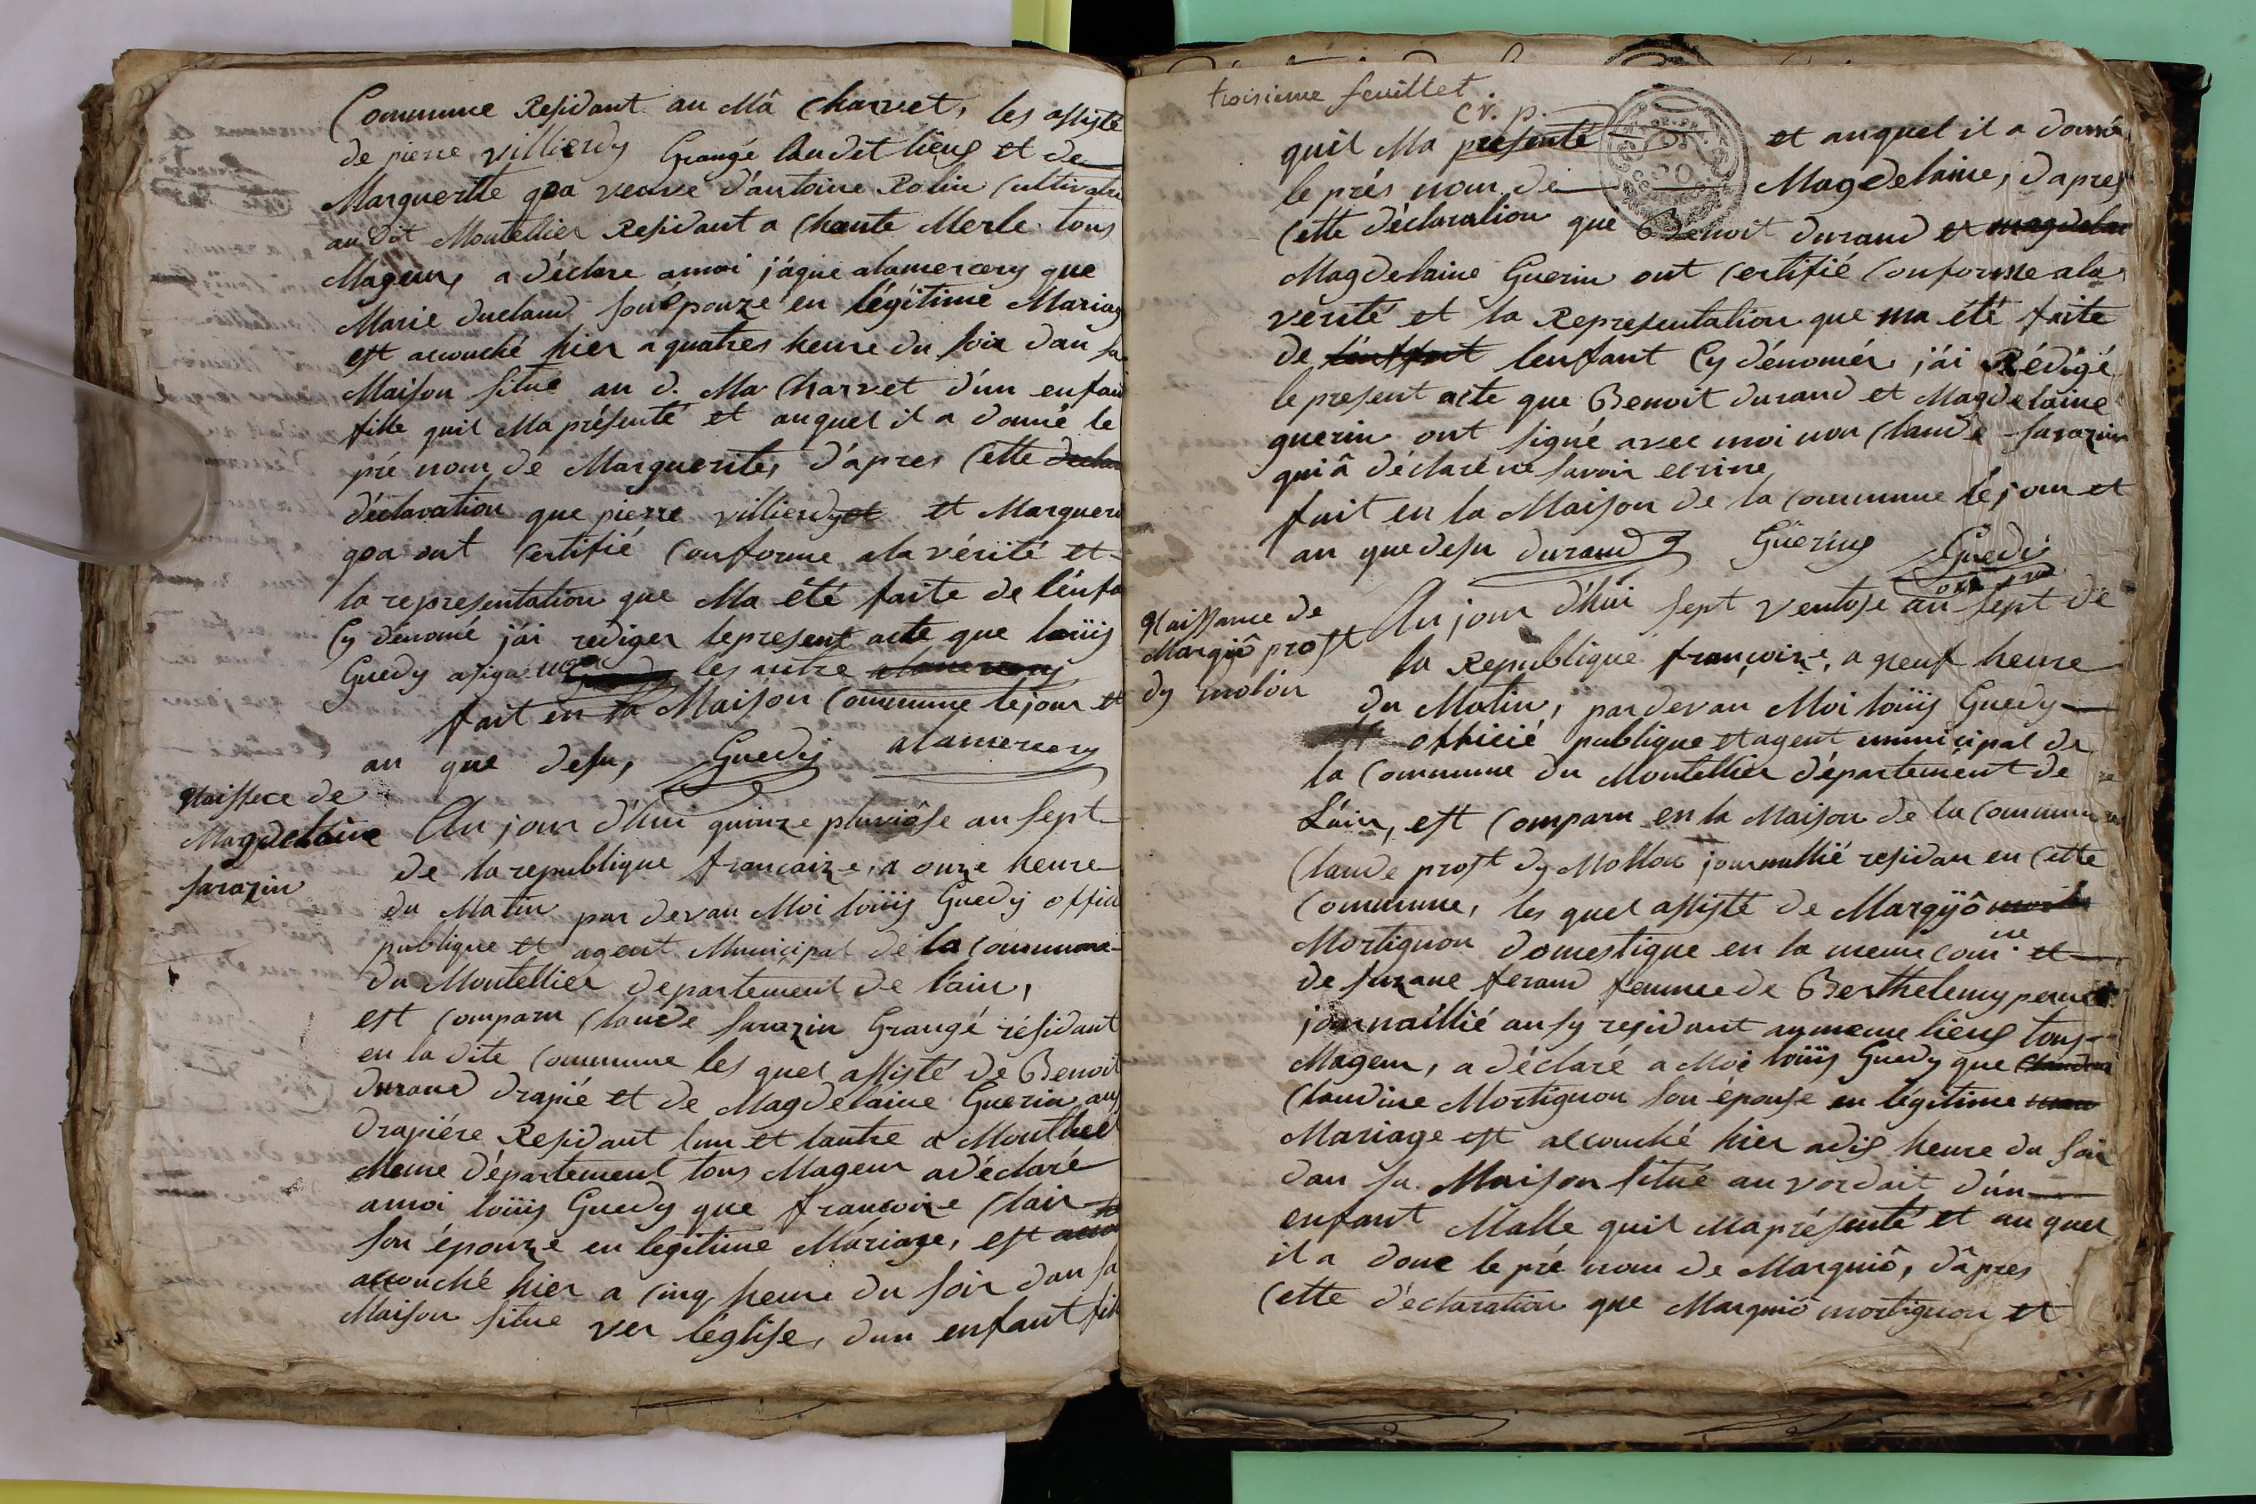 Commune Residant au Mâ Charvet, les assisté
de pierre villierdy Grangé Audit lieus et de
Marguerite goa veuve d'antoine Rolin Cultivatri
au dit Montellier Residant a Chante Merle tous
Mageurs a déclare amoi jâque alamercery que
Marie duclaud son épouze en légitime Mariag
est accouché hier a quatres heure du soir dan sa
Maison situé au d. Ma Charvet d'un enfan
fille quil Ma présenté et auquel il a donné le
pré nom de Marguerite, d'âpres Cette declar
déclaration que pierre villierdy et et Margueri
goa ont Certifié Conforme ala vérité et
la representation que Ma été faite de l'énfa
Cy dénomé j'ai rediger lepresent acte que loüis
Guedy asigné les autre alamercery
fait en la Maison Commune lejour et
an que desu, Guedy alamercery
Naissece de
Magdelaine
Sarazin
Au jour d'hui quinze pluviôse an sept
de la republique francaize, a onze heure
du Matin par devan Moi loüis Guedy offici
publique et agent Municipal de la Commune
du Montellier departement de l'ain,
est Comparu Claude Sarazin Grangé résidant
en la dite Commune les quel assisté de Benoit
durand drapié et de Magdelaine Guerin aus
drapiére Residant lun et lautre a Monthuel
Meme département tous Mageur adéclaré
amoi loüis Guedy que francoize Clair
son épouze en legitime Mariage, est acco
accouché hier a Cinq heure du soir dan sa
Maison situe ver léglise, dun enfant fil
troisieme feuillet
cr. p.
quil Ma présenté et auquel il a donné
le prés nom de Magdelaine, dapres
Cette déclaration que Benoit durand et magdelai
Magdelaine Guerin ont Certifié Conforme ala
vérité et la Representation que ma été faite
de l'enffant lenfant Cy dénomér j'ai Rédigé
le present acte que Benoit durand et Magdelaine
guerin ont signé avec moi non Claude Sarazin
qui â déclaré ne savoir ecrire
fait en la Maison de la Commune lé jour et
an que desu durand Güerins Guedy
Naissance de
Margüiô prost
dy molon
Au jour d'hui sept ventose an sept de
la Republique françoize, a neuf heure
du Matin, par devan Moi loüis Guedy
officié publique et agent municipal de
la Commune du Montellier département de
L'ain, est Comparu en la Maison de la Commun
Claude prost dy Mollon journallié residan en Cette
Commune, les quel assisté de Margüiô
Mortignon domestique en la meme com.ne et
de suzane feraud femme de Berthelemy
journaillié ausy residant aumeme lieus tous
Mageur, a déclaré a Moi loüis Guedy que Claudin
Claudine Mortignon son épouse en legitime
Mariage est accouché hier adix heure du soir
dan sa Maison situé au vordait d'ún
enfant Malle quil Ma présenté et au quel
il a done le pré nom de Marguiô, dâpres
Cette déclaration que Marguiô mortignon et